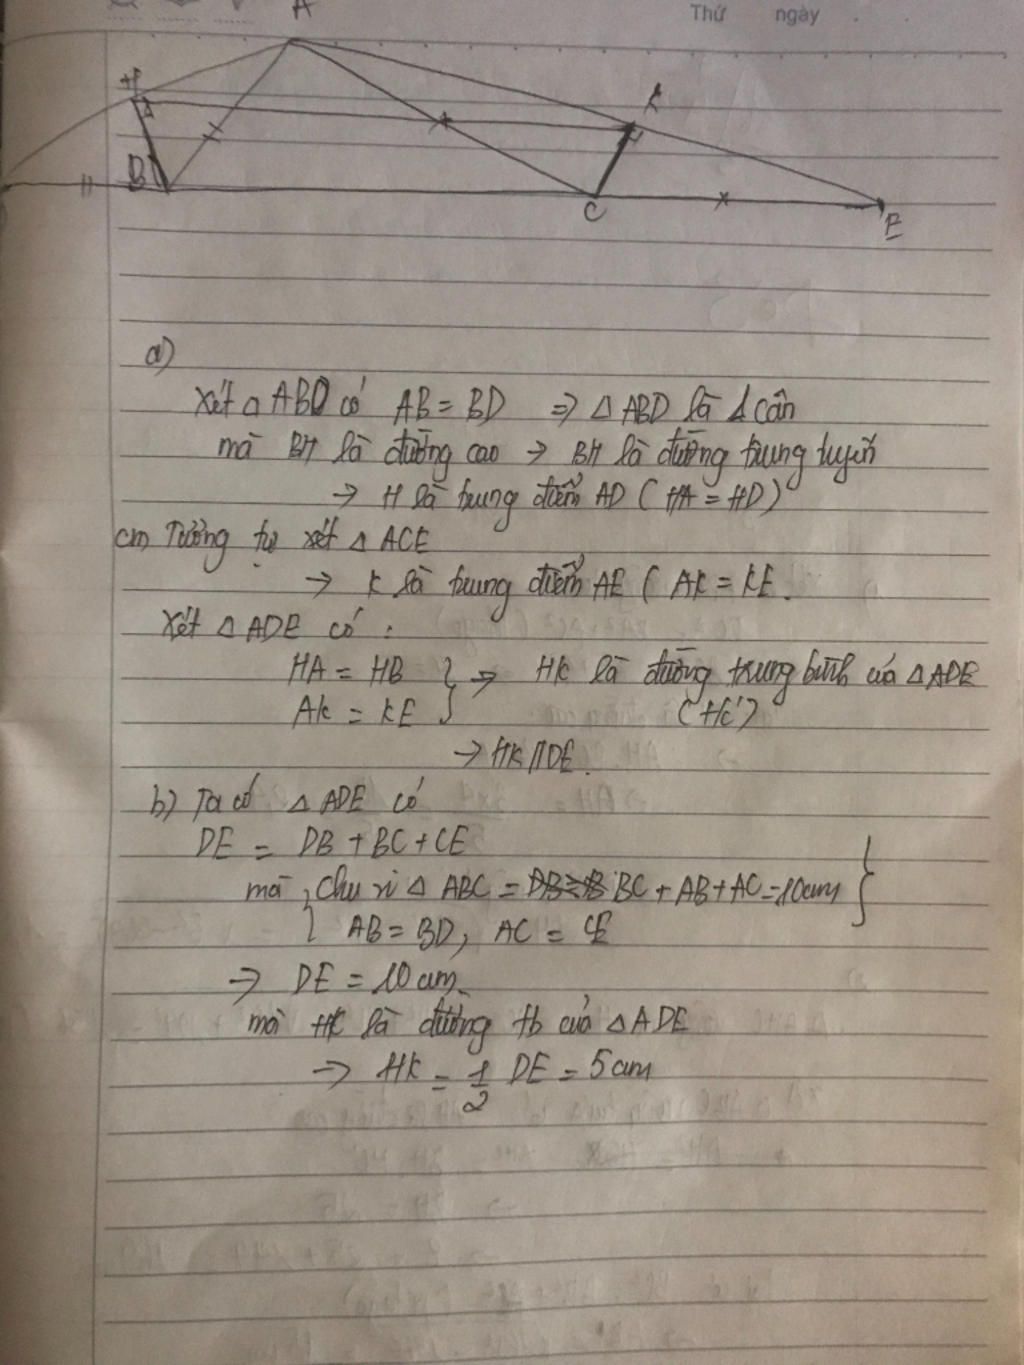 Thứ ngày
A
H
K
B
C
E
a)
Xét △ ABD có AB = BD => △ ABD là △ cân
mà BH là đường cao → BH là đường trung tuyến
→ H là trung điểm AD ( HA = HD)
cm Tương tự xét △ ACE
→ K là trung điểm AE ( AK = KE.
Xét △ ADE có :
HA = HB } => HK là đường trung bình của △ ADE
AK = KE
→ HK // DE.
b) Ta có △ ADE có
DE = DB + BC + CE
mà { Chu vi △ ABC = BC + AB + AC = 10cm }
AB = BD, AC = CE
→ DE = 10 cm.
mà HK là đường tb của △ ADE
→ HK = 1/2 DE = 5cm